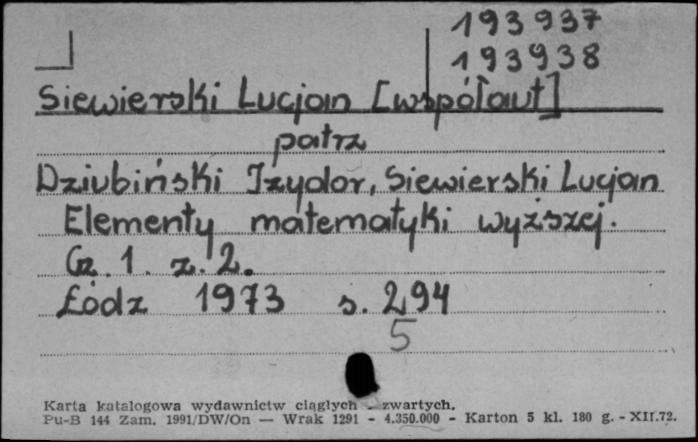 193937
193938
Siewierski Lucjan [współaut]
patrz
Dziubiński Izydor, Siewierski Lucjan
Elementy matematyki wyższej.
Cz. 1. z. 2.
Łódz 1973 s. 294
5
Karta katalogowa wydawnictw ciągłych - zwartych.
Pu-B 144 Zam. 1991/DW/On — Wrak 1291 - 4.350.000 - Karton 5 kl. 180 g. - XII.72.